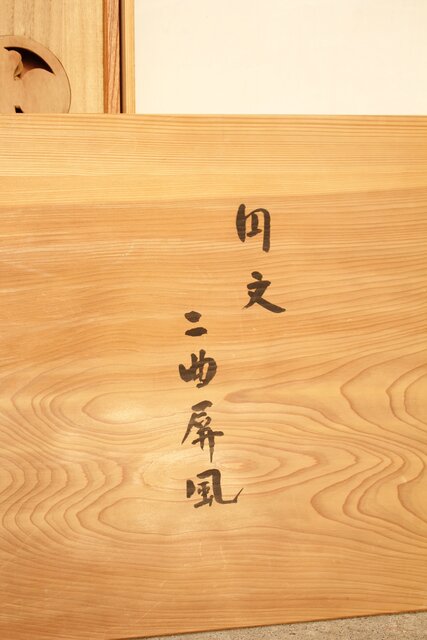 円文
二曲屏風